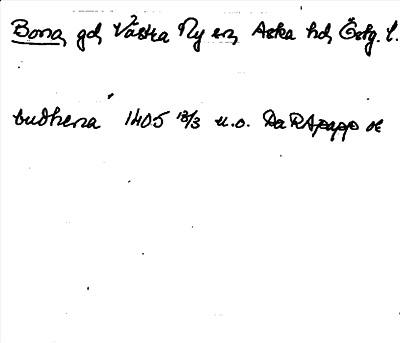 Bona, gd, Västra Ny sn, Aska hd, Östg. l.
budhena 1405 13/3 u.o. Da RApapp or